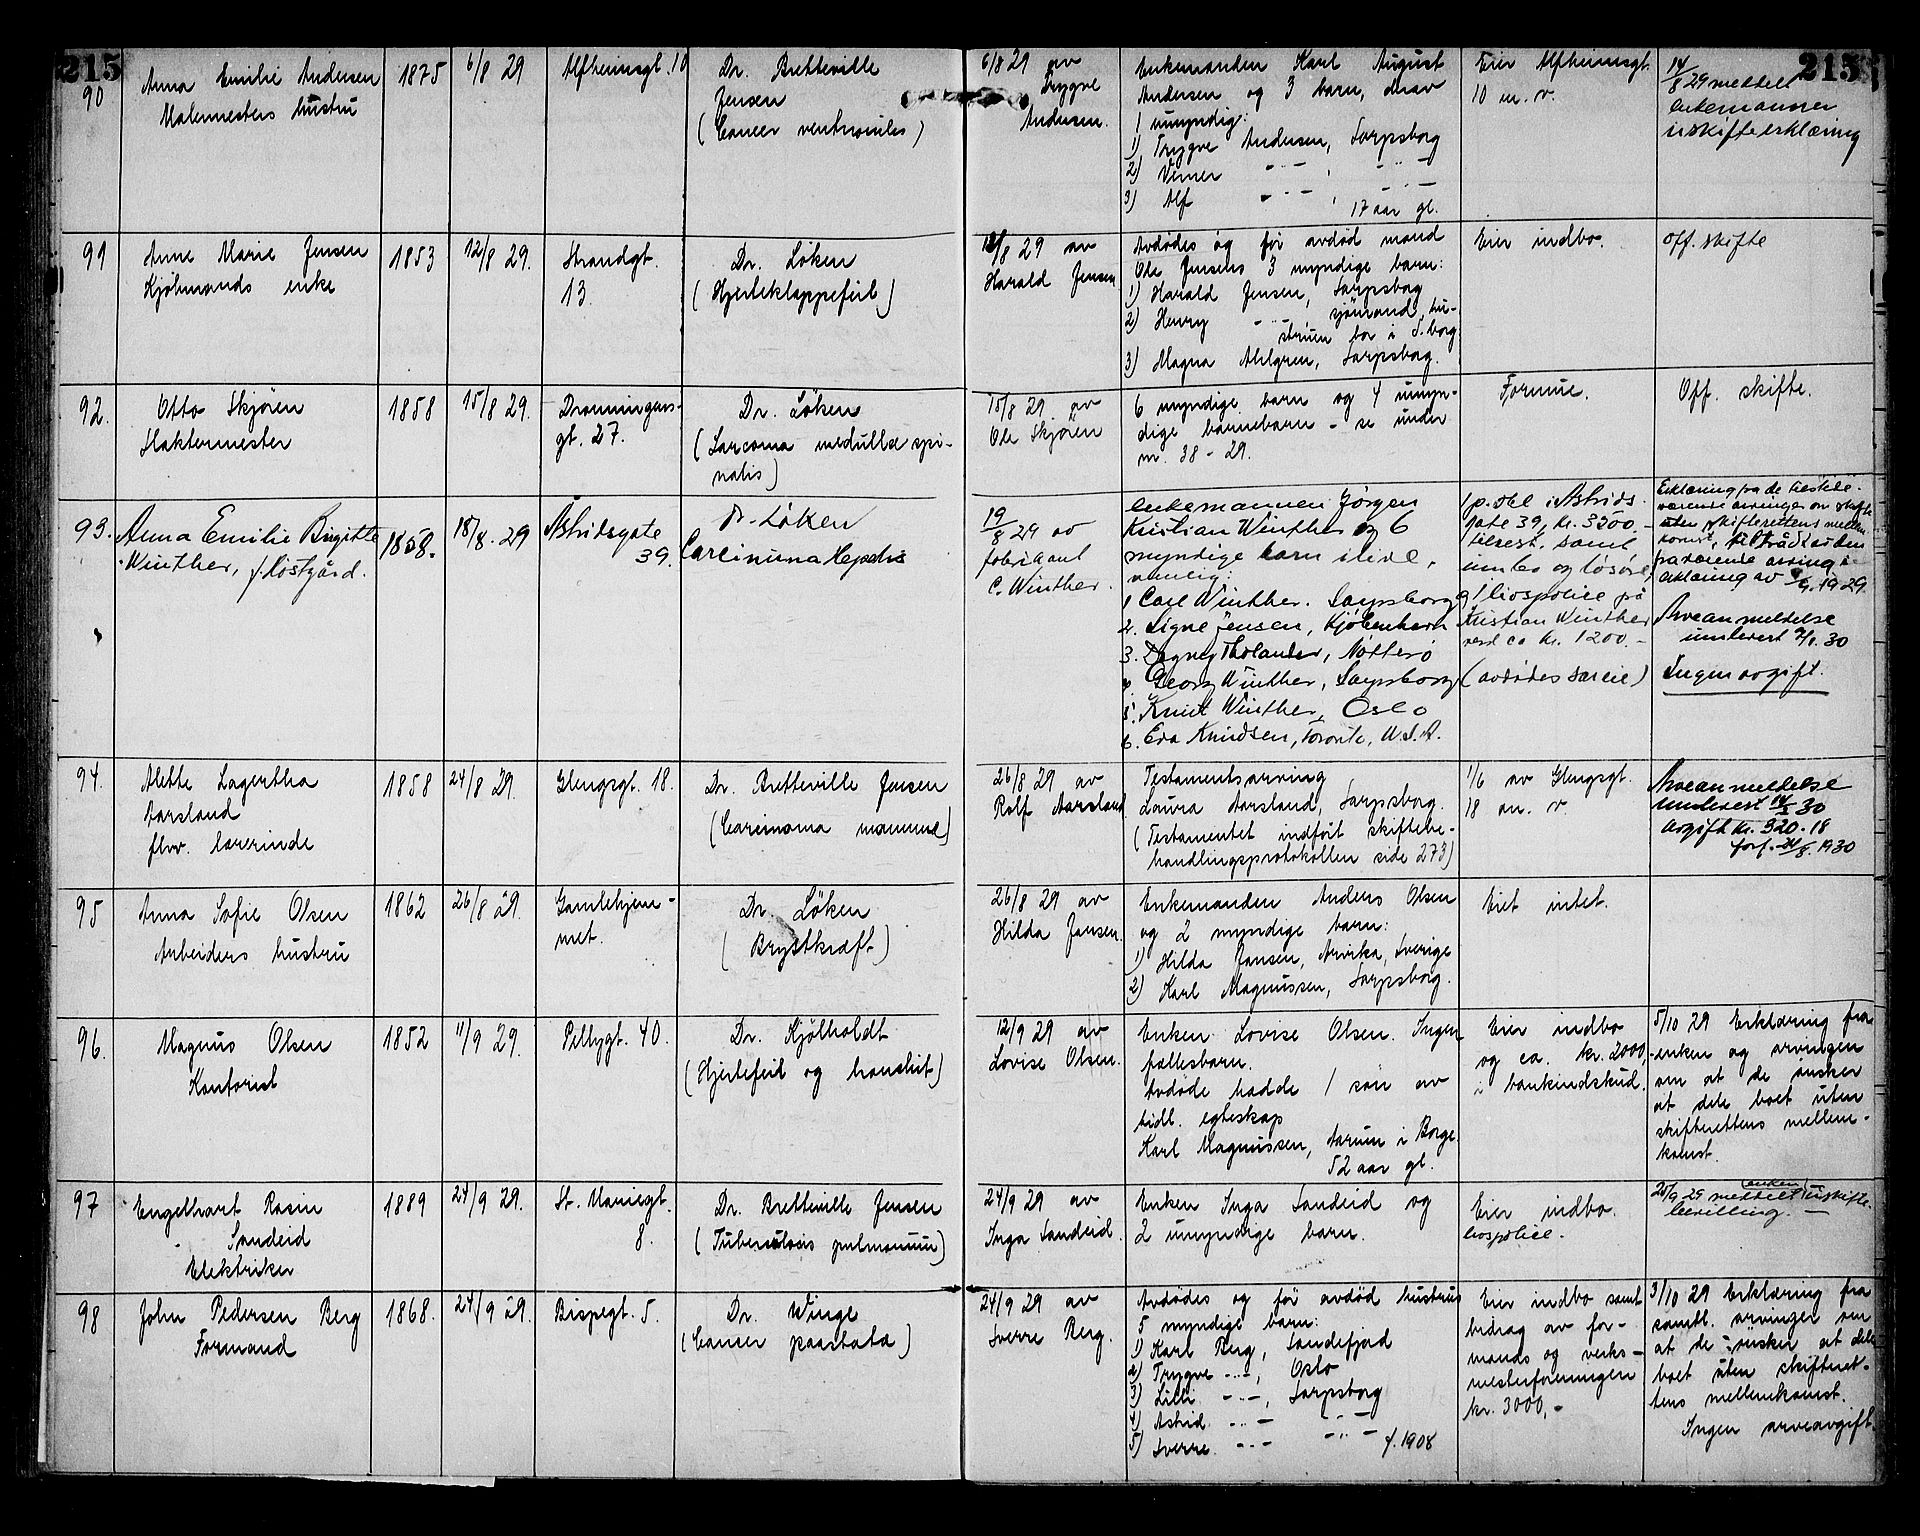 215
215
90
Anna Emilie Andersen
Malermesters hustru
1875
6/8 29
Alfheimsgt. 10
Dr. Bretteville
Jensen
(Cancer ventriculis)
6/8 29 av
Trygve
Andersen.
Enkemanden Karl August
Andersen og 3 barn, derav
1 umyndig:
1) Trygve Andersen, Sarpsborg
2) Verner - " - , - " -
3) Alf - " - , - " -
17 aar gl.
Eier Alfheimsgt.
10 m. v.
14/8 29 meddelt
enkemannen
uskifteerklæring
91
Anne Marie Jensen
Kjøbmands enke
1853
12/8 29.
Strandgt.
13.
Dr. Löken
(Hjerteklappefeil)
12/8 29 av
Harald Jensen
Avdødes og før avdød mand
Ole Jensens 3 myndige barn:
1) Harald Jensen, Sarpsborg
2) Henry - " -, sjömand, hu-
struen bor i S.borg
3) Magna Ahlgren, Sarpsborg.
Eier indbo.
Off. skifte
92.
Otto Skjören
Slaktermester
1858
15/8 29.
Dronningens-
gt. 27.
Dr. Löken
(Sarcoma medulla spi-
nalis)
15/8 29 av
Ole Skjören
6 myndige barn og 4 umyn-
dige barnebarn - se under
nr. 38 - 29.
Formue.
Off. skifte.
93.
Anna Emilie Birgitte
Winther, f. Röstgård.
1858.
18/8. 29
Astridsgate
39.
Dr. Löken
Carcinuma Hepatis
19/8 29 av
fabrikant
C. Winther.
enkemannen Jørgen
Kristian Winther og 6
myndige barn ilive,
nemlig:
1 Carl Winther. Sarpsborg
2. Signe Jensen, Kjøbenhavn
3. Dagny Tholander, Nøtterø
4. Georg Winther, Sarpsborg
5. Knut Winther, Oslo
6. Eva Knudsen, Toronto, U.S.A.
1 p. obl. i Astrids-
gate 39, kr. 3500.-
tilrest, samt
innbo og løsøre,
og 1 livspolice på
Kristian Winther
verd ca kr. 1200.-
(avdødes særeie)
Erklæring fra de tilstede-
værende arvinger om skifte
uten skifterettens mellem-
komst,
erklæring av 1929.
Arveanmeldelse
innlevert 30
Ingen avgift.
94.
Alette Lagertha
Aarsland
fhv. lærerinde
1858
24/8 29.
Glengsgt. 18.
Dr. Bretteville Jensen
(Carcinoma mamma)
26/8 29 av
Rolf Aarsland
Testamentsarving
Laura Aarsland, Sarpsborg.
(Testamentet indført skiftebe-
handlingsprotokollen side 273)
1/6 av Glengsgt.
18 m. v.
Arveanmeldelse
innlevert 30
Avgift kr. 320.18
forf. 24/8. 1930
95
Anna Sofie Olsen
Arbeiders hustru
1862
26/8 29.
Gamlehjem-
met.
Dr. Löken
(Brystkræft)
26/8 29 av
Hilda Jansen.
Enkemanden Anders Olsen
og 2 myndige barn:
1) Hilda Jansen, Arvika, Sverige
2) Karl Magnussen, Sarpsborg.
Eiet intet.
96.
Magnus Olsen
Kontorist
1852
11/9 29.
Pellygt. 40.
Dr. Kjölholdt
(Hjertefeil og)
12/9 29 av
Lovise Olsen.
Enken Lovise Olsen. Ingen
fællesbarn.
Avdøde hadde 1 sön av
tidl. egteskap
Karl Magnussen, Aarum i Borge.
52 aar gl.
Eier indbo
og ca. kr. 2000,
i bankindskud.
5/10 29 Erklæring fra
enken og arvingen
om at de önsker
at dele boet uten
skifterettens mellem-
komst.
97
Engelhart Rosin
Sandeid
Elektriker
1889
24/9 29.
St. Mariegt.
8.
Dr. Bretteville Jensen
(Tuberculosis pulmonum)
24/9 29 av
Inga Sandeid.
Enken Inga Sandeid og
2 umyndige barn.
Eier indbo.
livspolice.
enken
25/9 29 meddelt uskifte-
bevilling. —
98
John Pedersen Berg
Formand
1868.
24/9 29.
Bispegt. 5.
Dr. Winge
(Canser prostata)
24/9 29 av
Sverre Berg.
Avdødes og för avdød hustrus
5 myndige barn:
1) Karl Berg, Sandefjord
2) Trygve - " -, Oslo
3) Lilli - " -, Sarpsborg
4) Astrid - " - - " -
5) Sverre - " - - " - f. 1908
Eier indbo samt
bidrag av for-
mands og verks-
mesterforeningen
kr. 3000,-
3/10 29 Erklæring fra
samtl. arvinger om
at de önsker at dele
boet uten skifteret-
tens mellemkomst.
Ingen arveavgift.